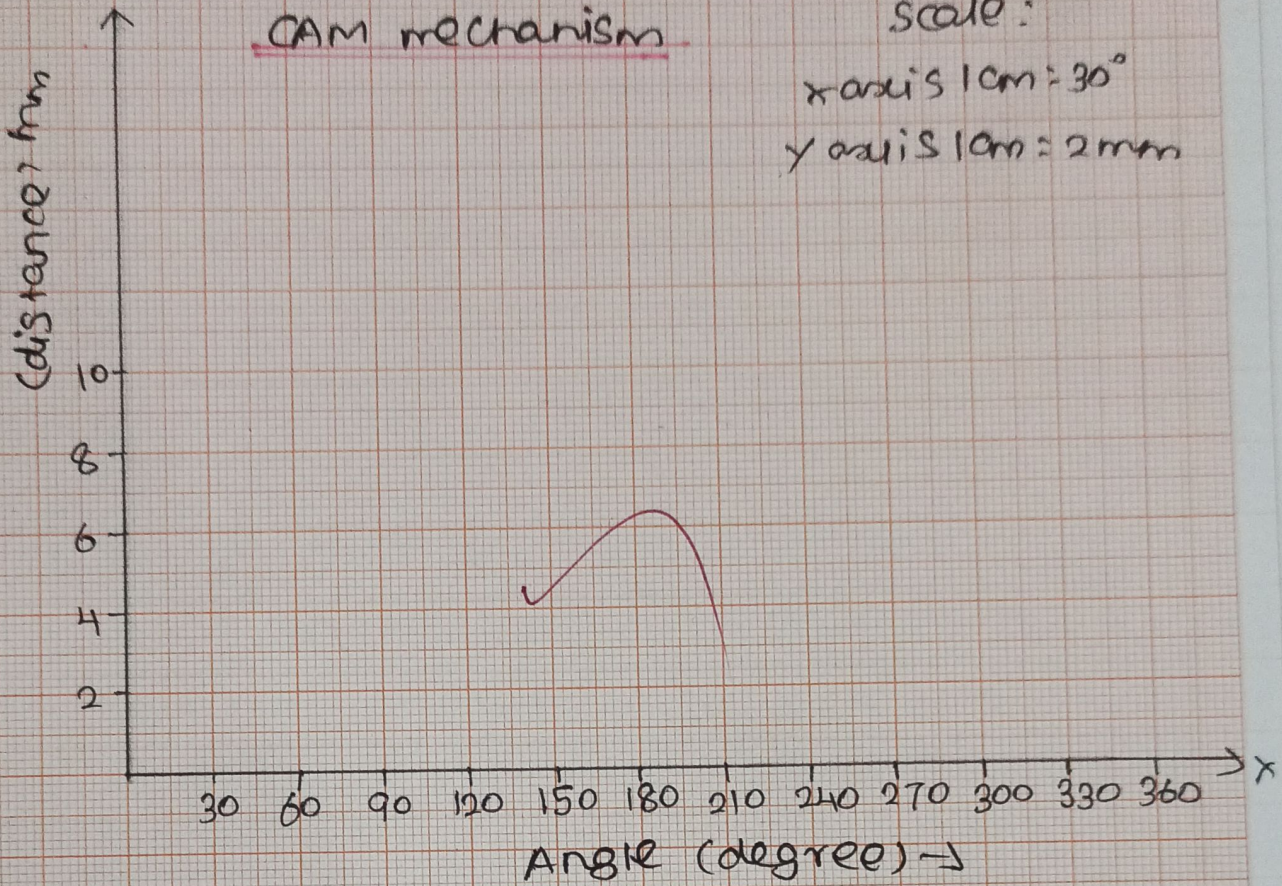 CAM mechanism
scale:
x axis 1cm = 30°
y axis 1cm = 2mm
(distance) mm
10
8
6
4
2
x
30 60 90 120 150 180 210 240 270 300 330 360
Angle (degree) →